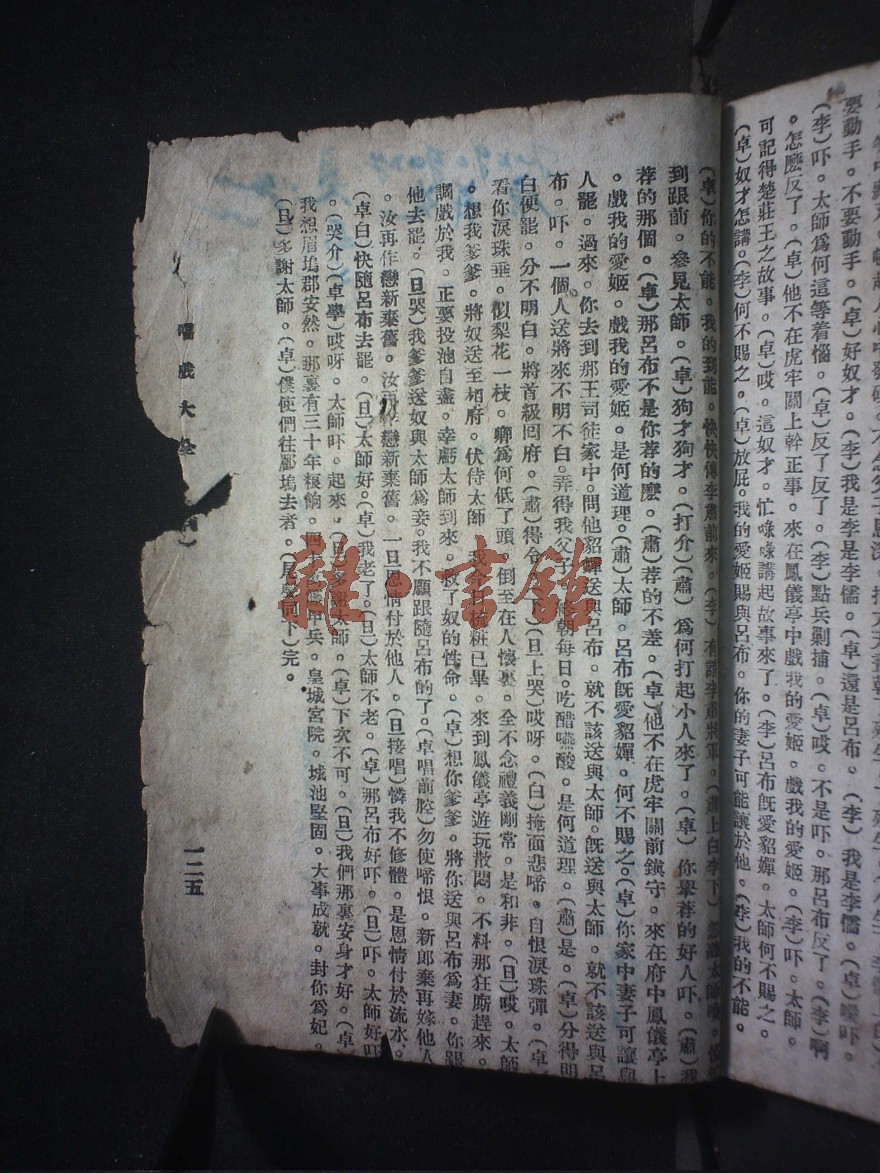 要動手。不要動手。(卓)好奴才。(李)我是李是李儒。(卓)還是呂布。(李)我是李儒。(卓)噯吓。
(李)吓。太師爲何這等着惱。(卓)反了反了。(李)點兵剿捕。(卓)哎。不是吓。那呂布反了。(李)啊
。怎麽反了。(卓)他不在虎牢關上幹正事。來在鳳儀亭中戲我的愛姬。戲我的愛姬。(李)吓。太師。
可記得楚莊王之故事。(卓)哎。這奴才。忙碌碌講起故事來了。(李)呂布旣愛貂嬋。太師何不賜之。
(卓)奴才怎講。(李)何不賜之。(卓)放屁。我的愛姬賜與呂布。你的妻子可能讓於他。(李)我的不能。
(卓)你的不能。我的到能。快快傳李肅前來。(李)有請李肅將軍。(肅上白李下)
到跟前。參見太師。(卓)狗才狗才。(打介)(肅)爲何打起小人來了。(卓)你舉荐的好人吓。(肅)我
荐的那個。(卓)那呂布不是你荐的麽。(肅)荐的不差。(卓)他不在虎牢關前鎭守。來在府中鳳儀亭上
。戲我的愛姬。戲我的愛姬。是何道理。(肅)太師。呂布旣愛貂嬋。何不賜之。(卓)你家中妻子可讓與
人罷。過來。你去到那王司徒家中。問他貂嬋送與呂布。就不該送與太師。旣送與太師。就不該送與呂
布。吓。一個人送將來不明不白。弄得我父子終朝每日。吃醋嚥酸。是何道理。(肅)是。(卓)分得明
白便罷。分不明白。將首級囘府。(肅)得令。下(旦上哭)哎呀。(白)掩面悲啼。自恨淚珠彈。(卓)
看你淚珠垂。似梨花一枝。卿爲何低了頭。倒至在人懷裏。全不念禮義剛常。是和非。(旦)哎。太師
。想我爹爹。將奴送至相府。伏侍太師。我今日梳粧已畢。來到鳳儀亭遊玩散悶。不料那狂廝趕來。
調戲於我。正要投池自盡。幸蒞太師到來。救了奴的性命。(卓)想你爹爹。將你送與呂布爲妻。你跟
他去罷。(旦哭)我爹爹送奴與太師爲妾。我不願跟隨呂布的了。(卓唱前腔)勿使啼恨。新郎棄再嫁他人
。汝再作戀新棄舊。汝再作戀新棄舊。一旦恩情付於他人。(旦接唱)憐我不修體。是恩情付於流水。
(卓白)快隨呂布去罷。(旦)太師好。(卓)我老了。(旦)太師不老。(卓)那呂布好吓。(旦)吓。太師好吓
。(哭介)(卓舉)哎呀。太師吓。起來。(旦)多謝太師。(卓)下次不可。(旦)我們那裏安身才好。(卓)
我想眉塢郡安然。那裏有三十年糧餉。甲兵。皇城宮院。城池堅固。大事成就。封你爲妃。
(旦)多謝太師。(卓)僕使們往郿塢去者。(尾聲同下)完。
唱戲大全
一二五
龍·書館